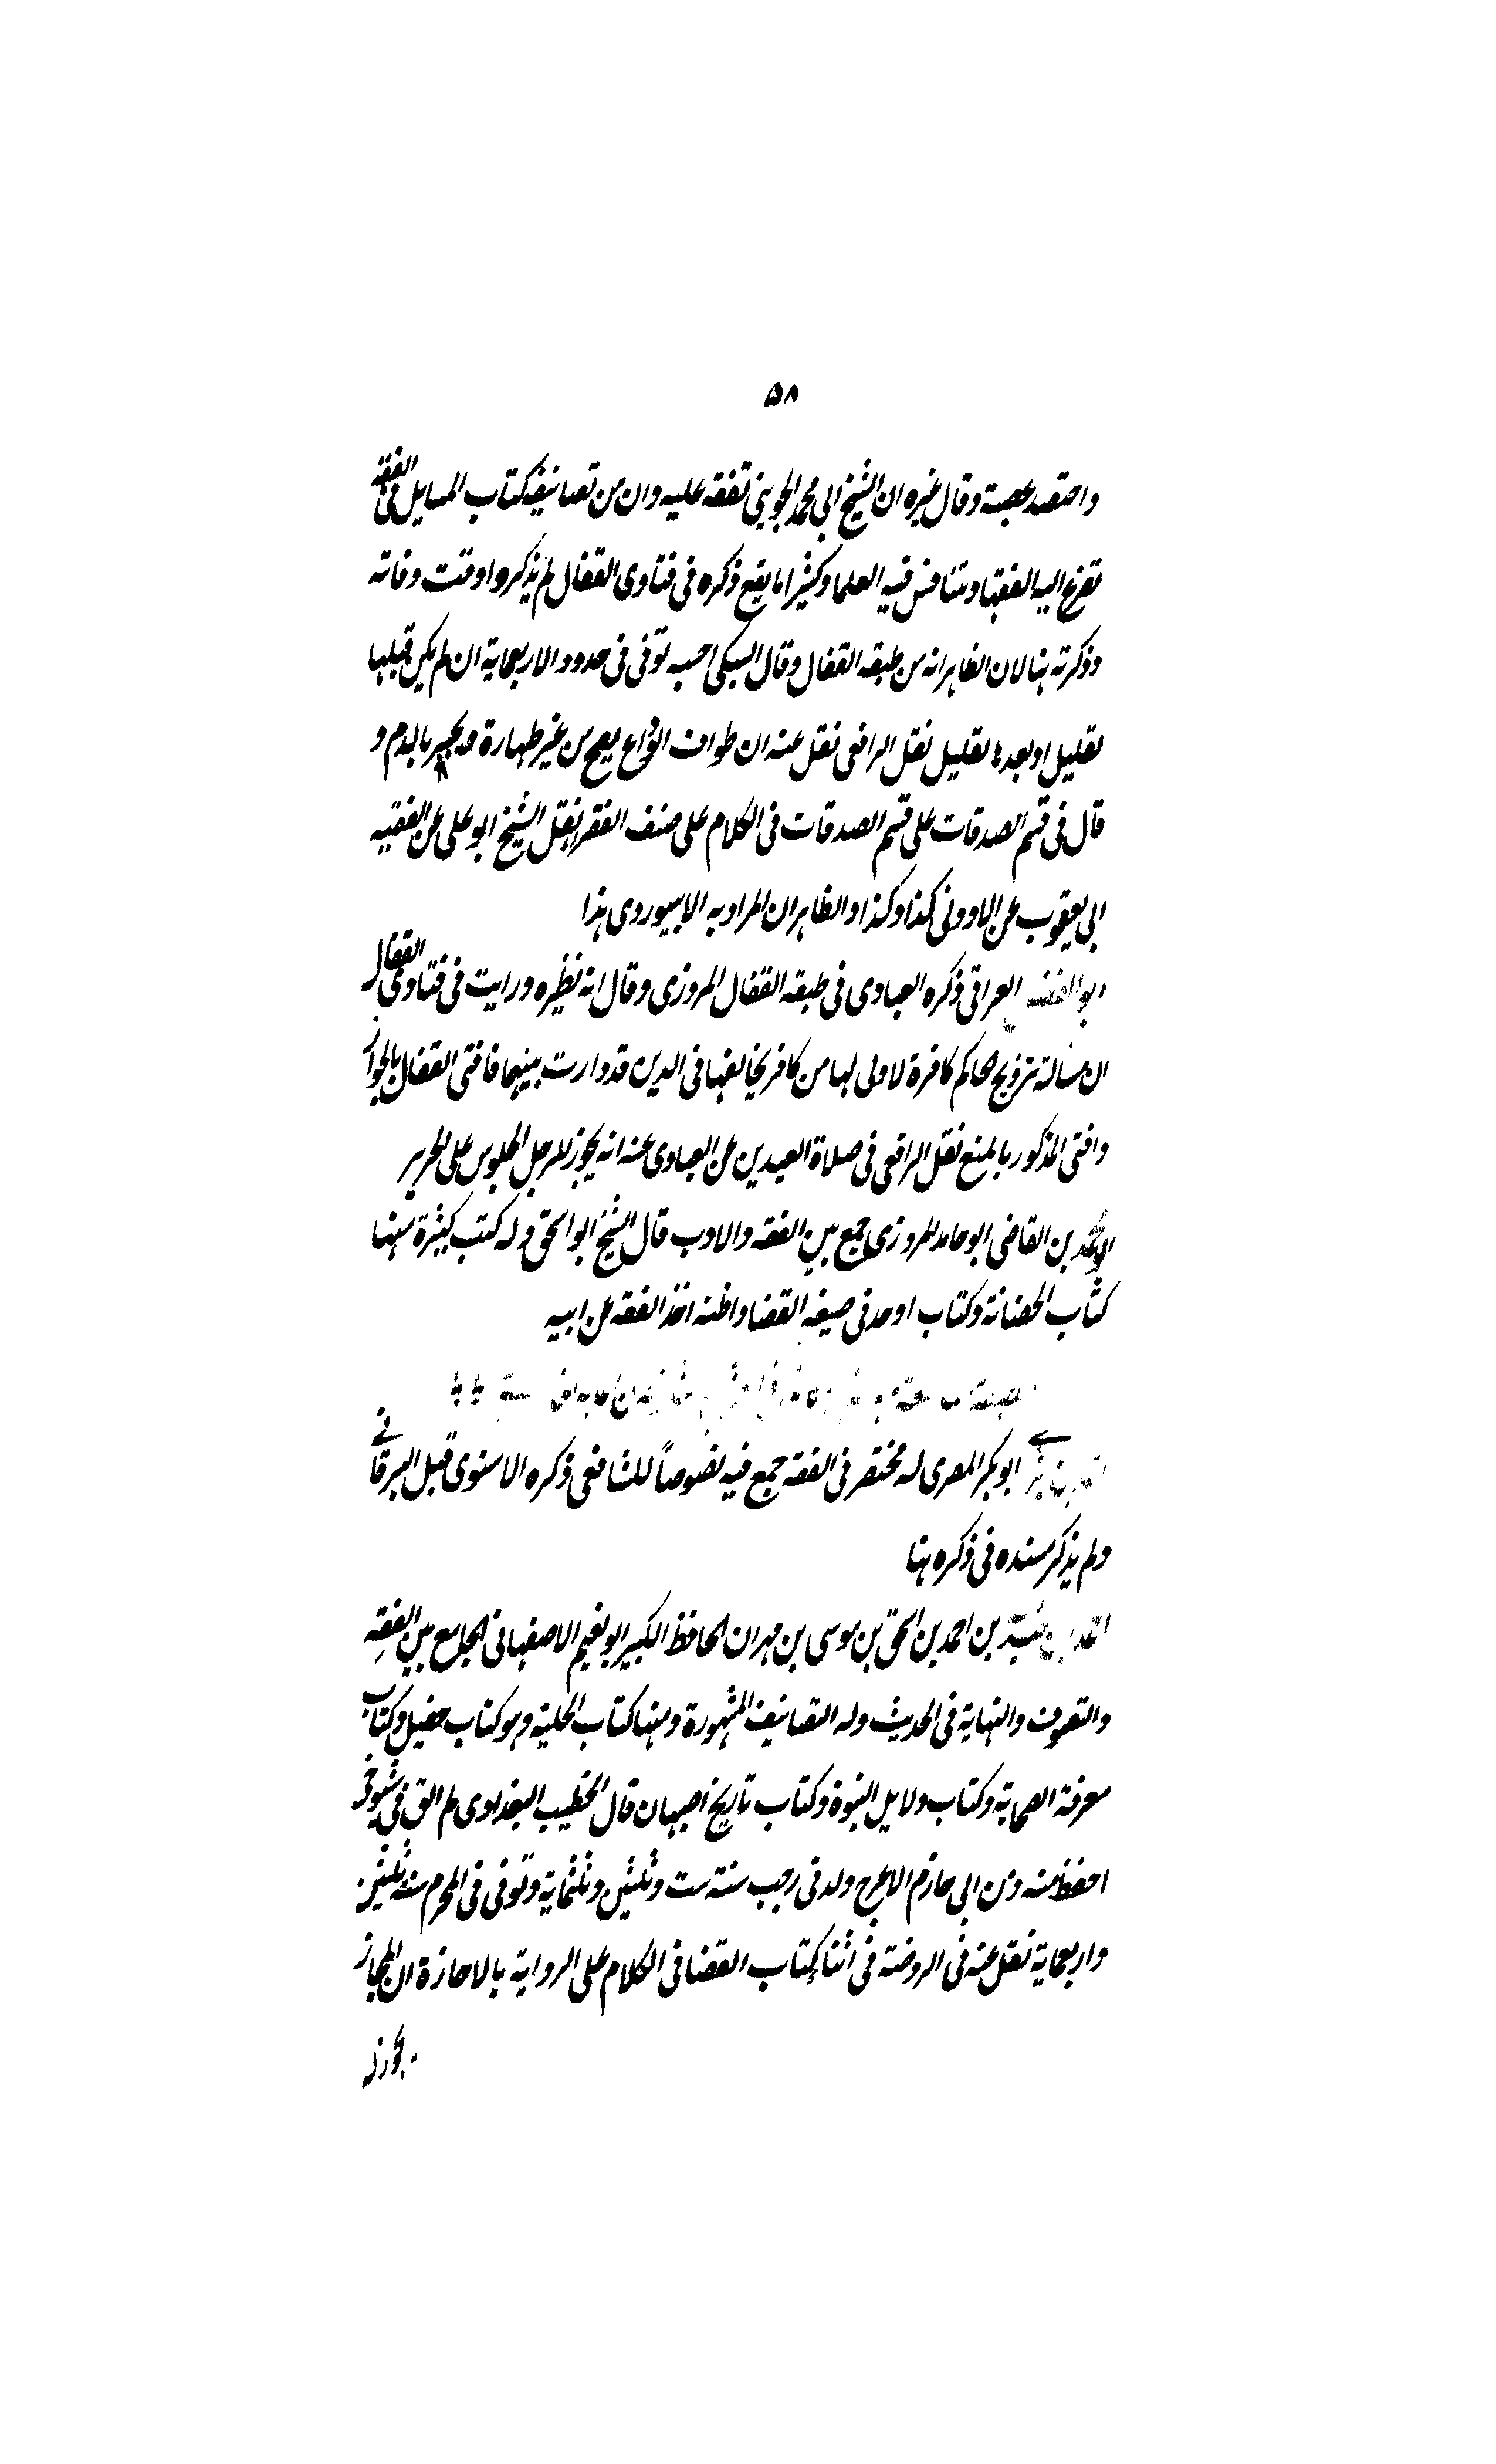 ٥٨
واحتصد بصحبة وقال غيره ان الشيخ ابى محمد الجوينى تفقه عليه وان من تصانيفه كتاب المسايل فى الفقه
تفزع اليه الفقها وتتنافس فيه العلما وكثيرا ما يقع ذكره فى فتاوى القفال لم يذكروا وقت وفاته
وذكرته هنا لان الظاهر انه من طبقه القفال وقال السبكى احسبه توفى فى حدود الاربعماية ان لم يكن قبلها
بقليل او بعدها بقليل نقل الرافعى نقل عنه ان طواف الوداع يصح من غير طهارة ويجبر بالدم و
قال فى قسم الصدقات على قسم الصدقات فى الكلام على صنف الفقرا نقل الشيخ ابو على عن الفقيه
ابى يعقوب عن الاودنى كذا وكذا والظاهر ان المراد به الابيوردى هذا
ابو العراقى ذكره العبادى فى طبقه القفال المروزى وقال انه نظيره ورايت فى فتاوى القفال
ان مسالة تزويج الحاكم كافرة لا ولى لها من كافر يخالفها فى الدين قد دارت بينهما فافتى القفال بالجواز
وافتى المذكور بالمنع نقل الرافعى فى صلاة العيدين عن العبادى عنه انه يجوز للرجل الجلوس على الحرير
ابو محمد بن القاضى ابو حامد المروزى جمع بين الفقه والادب قال الشيخ ابو اسحق وله كتب كثيرة منها
كتاب الحضانة وكتاب اوحد فى صيغه القضا واظنه اخذ الفقه عن ابيه
ابو بكر المصرى له مختصر فى الفقه جمع فيه نصوصاً للشافعى ذكره الاسنوى قبل البرقانى
ولم يذكر سنده فى ذكره هنا
احمد بن بن احمد بن اسحق بن موسى بن مهران الحافظ الكبير ابو نعيم الاصفهانى الجامع بين الفقه
والتصوف والنهاية فى الحديث وله التصانيف المشهورة ومنها كتاب الحلية وهو كتاب حفيل وكتاب
معرفة الصحابة وكتاب دلايل النبوة وكتاب تاريخ اصبهان قال الخطيب البغدادى لم الق فى شيوخى
احفظ منه ومن ابى حازم الاعرج ولد فى رجب سنة ست وثلثين وثلثماية وتوفى فى المحرم سنة ثلثين
واربعماية نقل عنه فى الروضة فى اثنا كتاب القضا فى الكلام على الرواية بالاجازة ان المجاز
يجوز له